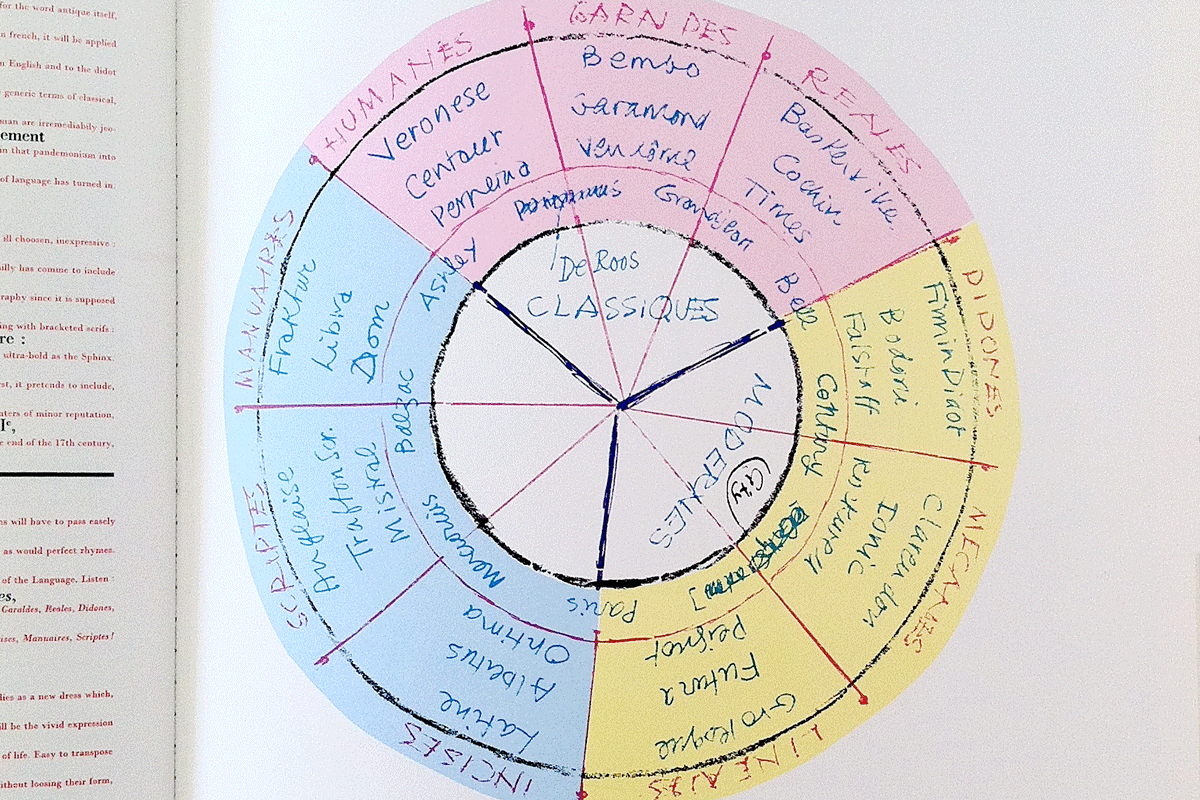 for the word antique itself,
n french, it will be applied
n English and to the didot
generic terms of classical,
man are irremediabily jeo-
ement
in that pandemonium into
of language has turned in.
ill choosen, inexpressive :
ally has comine to include
graphy since it is supposed
ing with bracketed serifs :
re :
ultra-bold as the Sphinx.
rst, it pretends to include,
nters of minor reputation,
e end of the 17th century,
ns will have to pass easily
as would perfect rhymes.
of the Language. Listen :
es,
Garaldes, Reales, Didones,
ises, Manuaires, Scriptes!
dies as a new dress which,
ill be the vivid expression
of life. Easy to transpose
ithout loosing their form,
HUMANES
Veronese
Centaur
GARNDES
Bembo
Garamond
Grandjean
REALES
Baskerville
Cochin
Times
Bell
DIDONES
Firmin Didot
Bodoni
Falstaff
Century
MECANES
Clarendon
Ionic
Rockwell
City
LINEALES
Grotesque
Futura
Peignot
Paris
INCISES
Latine
Albertus
Ontima
Mercurius
SCRIPTES
Anglaise
Trafton Scr.
Mistral
Balzac
MANUAIRES
Fraktur
Libira
Dom
Ashley
De Roos
CLASSIQUES
MODERNES